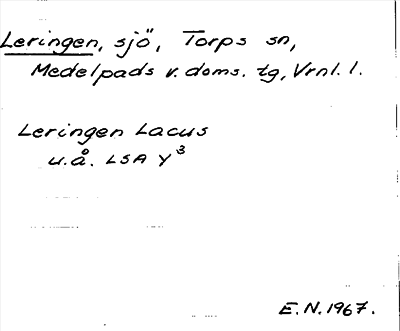 Leringen, sjö, Torps sn,
Medelpads v. doms. tg, Vrnl. l.
Leringen Lacus
u.å. LSA Y³
E.N. 1967.